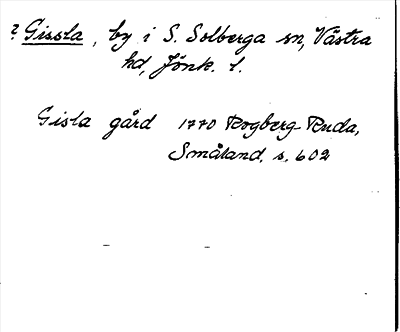 ? Gissla, by i S. Solberga sn, Västra
hd, Jönk. l.
Gisla gård 1770 Rogberg-Ruda,
Småland, s. 602